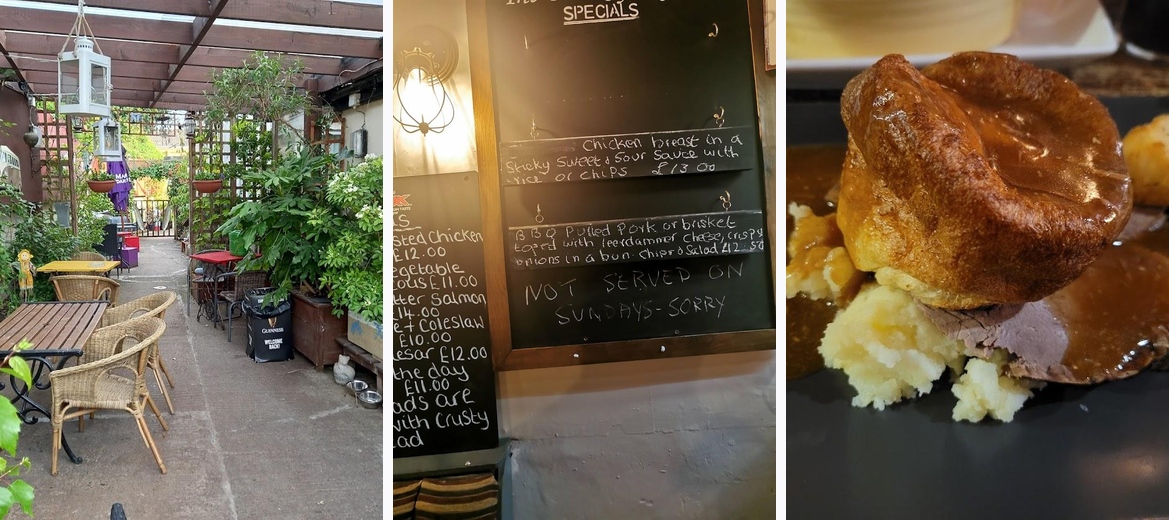 GUINNESS
WELCOME
BACK!
SPECIALS
Chicken breast in a
Sticky Sweet & Sour Sauce with
rice or chips £13.00
BBQ Pulled Pork or brisket
toped with leerdammer cheese, crispy
onions in a bun. chips & Salad £12.50
NOT SERVED ON
SUNDAYS-SORRY
Chicken
£12.00
£11.00
Salmon
14.00
Coleslaw
£10.00
£12.00
the day
£11.00
are
with Crusty